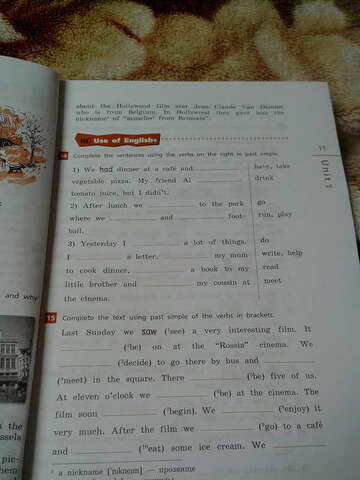 about the Hollywood film star Jean Claude Van Damme
who is from Belgium. In Hollywood they gave him the
nickname¹ of "muscles" from Brussels".
Use of English
Complete the sentences using the verbs on the right in past simple.
11
Unit 1
1) We had dinner at a café and ________
have, take
vegetable pizza. My friend Al ________
drink
tomato juice, but I didn't.
2) After lunch we ________ to the park
go
where we ________ and ________ foot-
run, play
ball.
3) Yesterday I ________ a lot of things.
do
I ________ a letter, ________ my mum
write, help
to cook dinner, ________ a book to my
read
little brother and ________ my cousin at
meet
the cinema.
15 Complete the text using past simple of the verbs in brackets.
Last Sunday we saw (¹see) a very interesting film. It
________ (²be) on at the "Rossia" cinema. We
________ (³decide) to go there by bus and ________
(⁴meet) in the square. There ________ (⁵be) five of us.
At eleven o'clock we ________ (⁶be) at the cinema. The
film soon ________ (⁷begin). We ________ (⁸enjoy) it
very much. After the film we ________ (⁹go) to a café
and ________ (¹⁰eat) some ice cream. We ________
¹ a nickname [ˈnɪkneɪm] — прозвище
and why
n the
ssels
pic-
hem